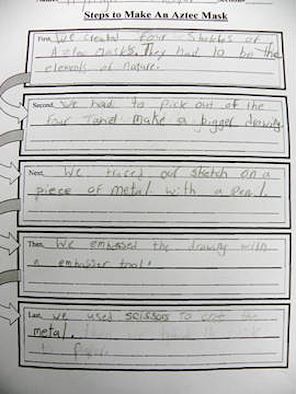 Steps to Make An Aztec Mask
First, We created four Sketches of
Aztec masks. They had to be the
elements of nature.
Second, We had to pick out of the
four and make a bigger drawing.
Next, We traced our sketch on a
piece of metal with a pencil.
Then, We embossed the drawing with
a embosser tool.
Last, we used scissors to the
metal.